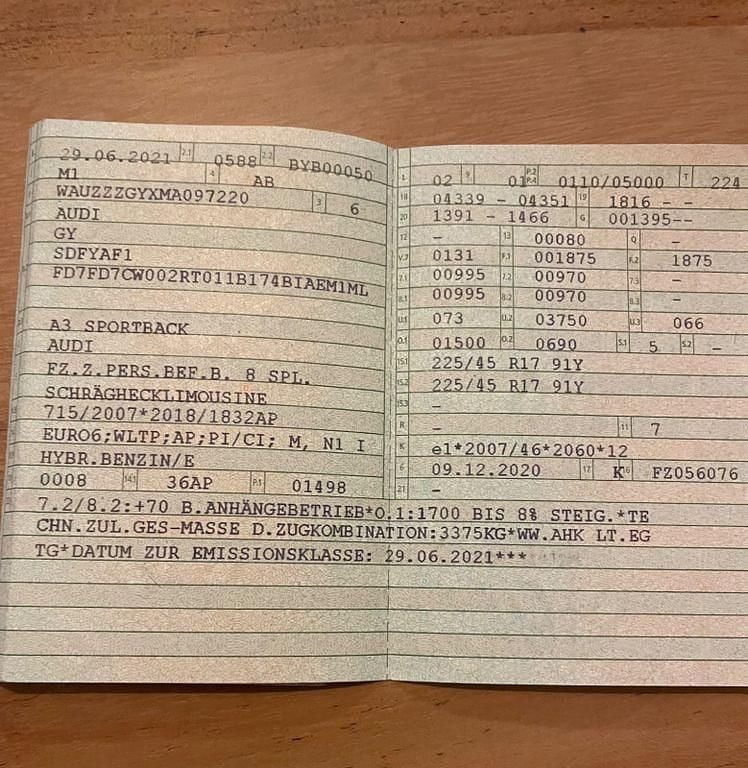 29.06.2021 2.1 0588 2.2 BYB00050
M1 4 AB
WAUZZZGYXMA097220 3 6
AUDI
GY
SDFYAF1
FD7FD7CW002RT011B174BIAEM1ML
A3 SPORTBACK
AUDI
FZ.Z.PERS.BEF.B. 8 SPL.
SCHRÄGHECKLIMOUSINE
715/2007*2018/1832AP
EURO6;WLTP;AP;PI/CI; M, N1 I
HYBR.BENZIN/E
0008 14.1 36AP P.1 01498
L 02 9 01 P.2 P.4 0110/05000 T 224
18 04339 - 04351 19 1816 - -
20 1391 - 1466 G 001395--
12 - 13 00080 Q -
V.7 0131 F.1 001875 F.2 1875
7.1 00995 7.2 00970 7.3 -
8.1 00995 8.2 00970 8.3 -
U.1 073 U.2 03750 U.3 066
O.1 01500 O.2 0690 S.1 5 S.2 -
15.1 225/45 R17 91Y
15.2 225/45 R17 91Y
15.3 -
R - 11 7
K e1*2007/46*2060*12
6 09.12.2020 17 K 16 FZ056076
21 -
7.2/8.2:+70 B.ANHÄNGEBETRIEB*O.1:1700 BIS 8% STEIG.*TE
CHN.ZUL.GES-MASSE D.ZUGKOMBINATION:3375KG*WW.AHK LT.EG
TG*DATUM ZUR EMISSIONSKLASSE: 29.06.2021***